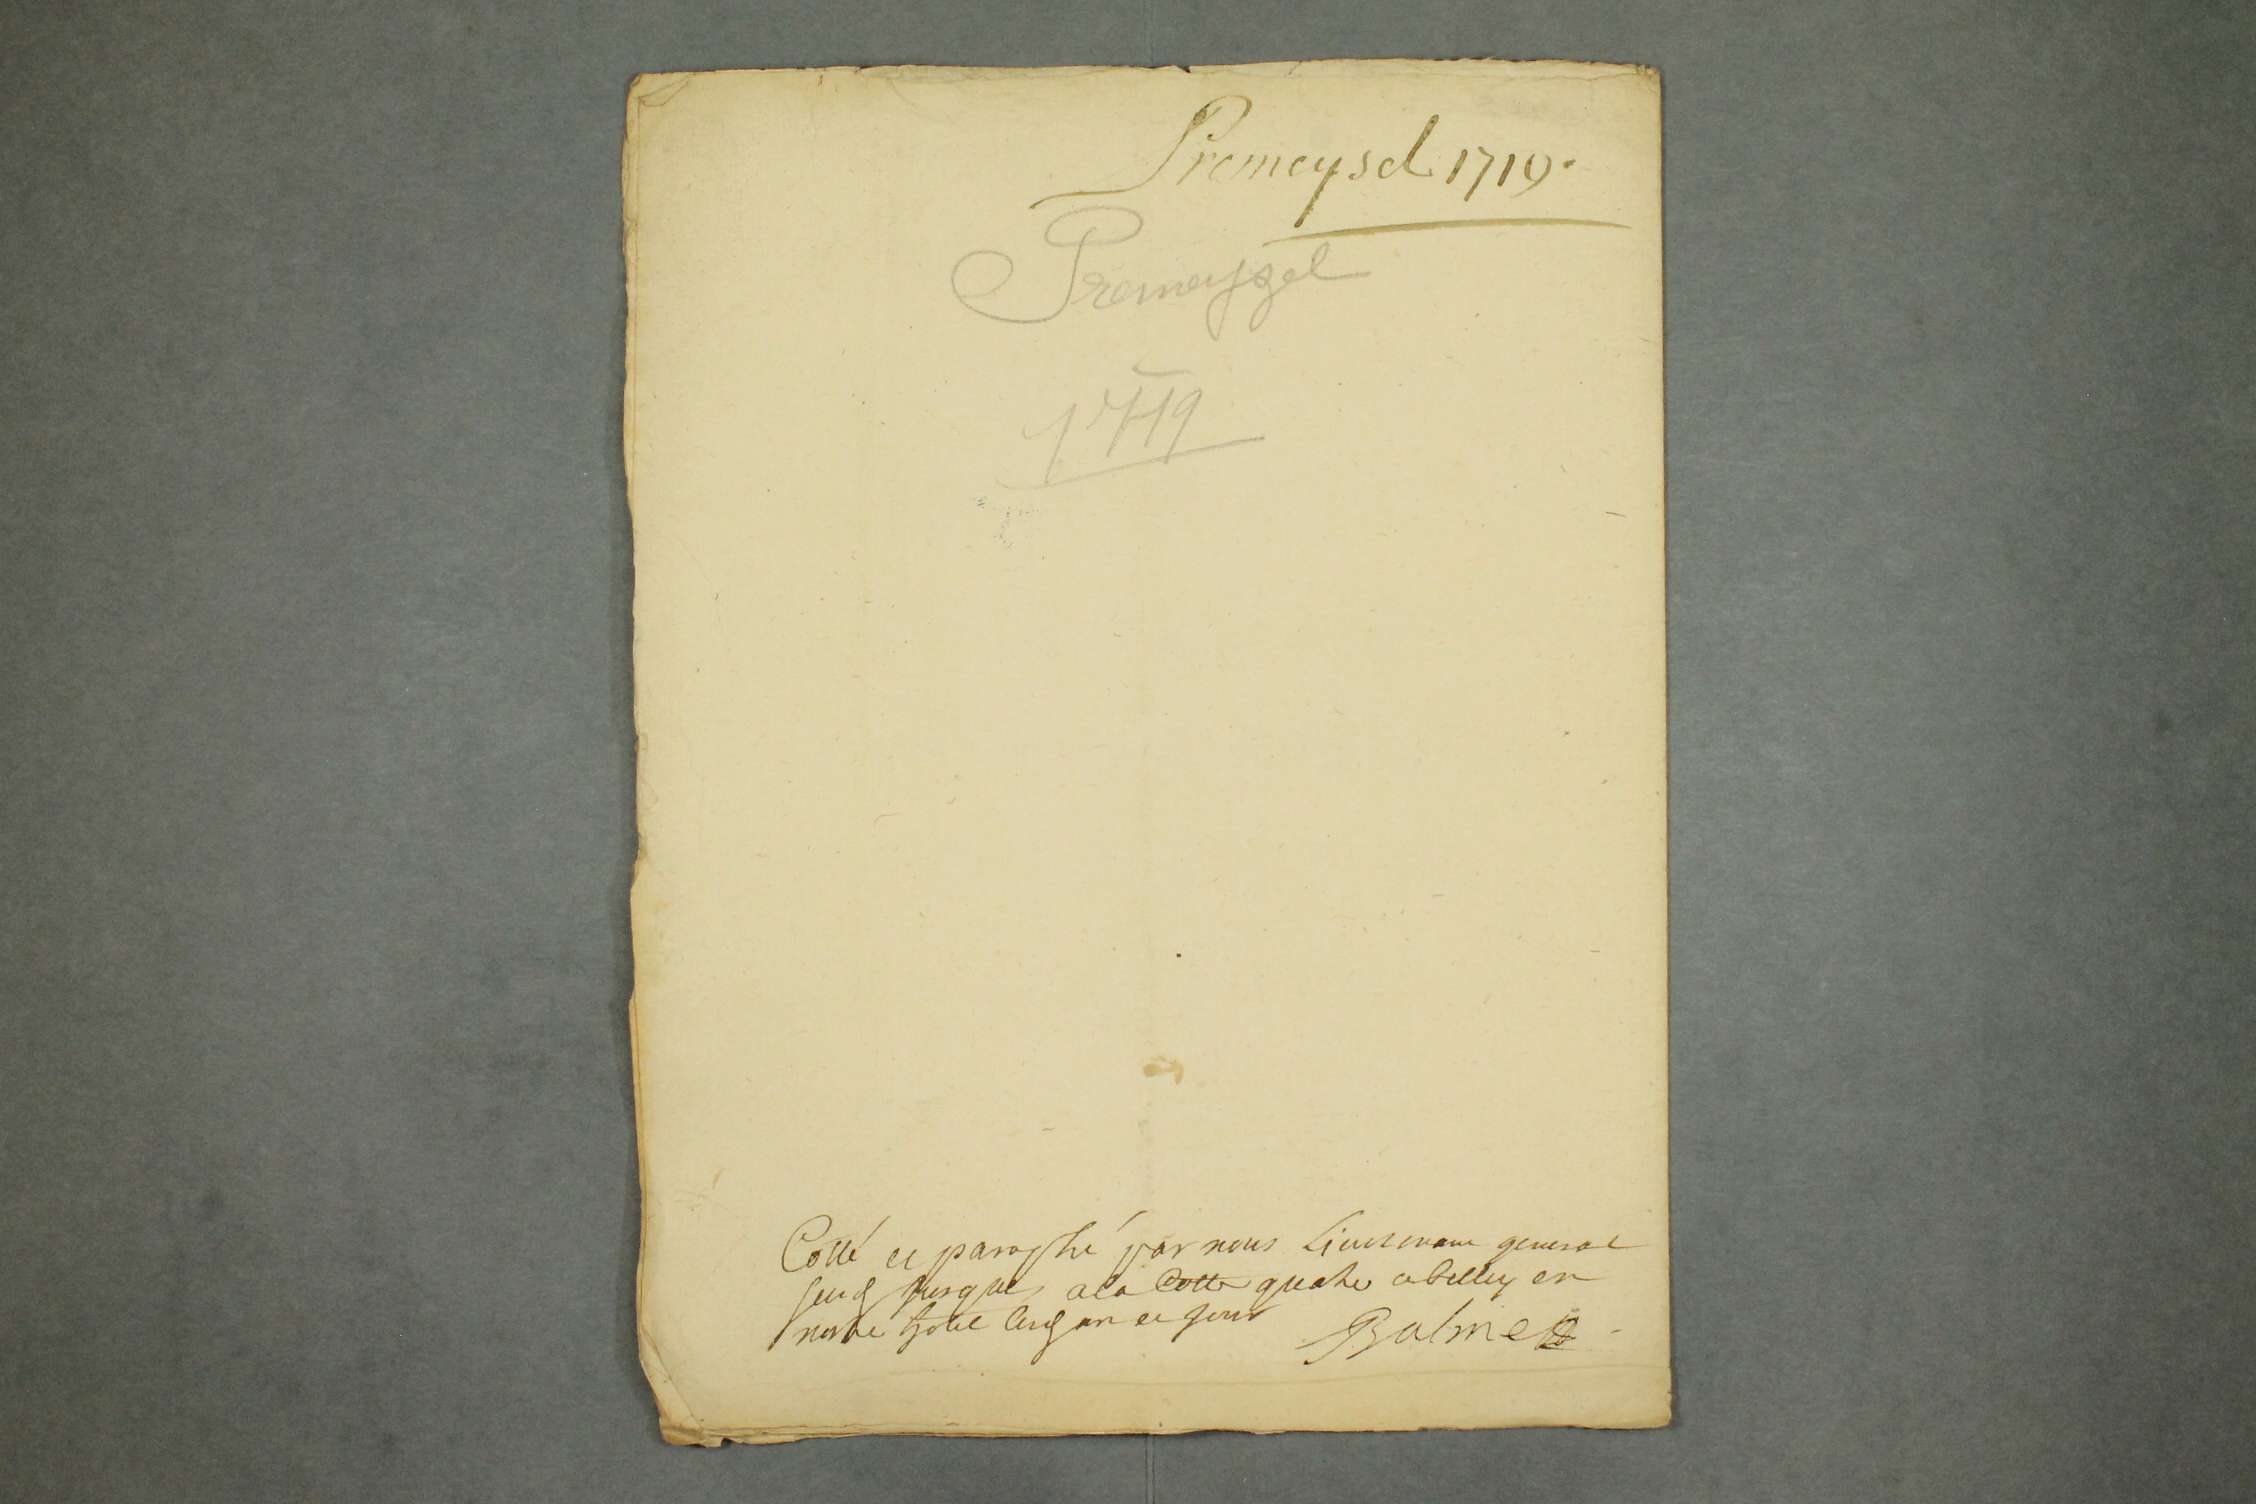 Premeysel 1719.
Premeyzel
1719
Cotté et paraphé par nous Lieutenant general
jusques a la Cotte quatre a belley en
nostre hotel an et jour
Balme